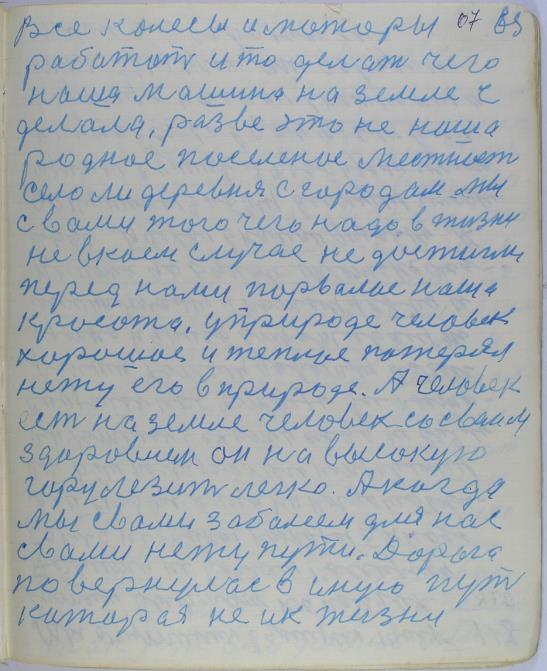 Все колесы и моторы 07 83
работоть и то делат чего
наша машина на земле
делала, разве это не наша
родное поселеное местност
село ли деревня с городам мы
с вами того чего надо в жизни
не вкоем случае не достигли
перед нами порвалос наша
красота, у природе человек
хорошое и теплое потерял
нету его в природе. А человек
ест на земле человек со сваим
здоровием он на высокую
гору лезить легко. А когда
мы свами заболеем для нас
свами нету пути. Дорога
повернулас в иную путь
каторая не ик жизни